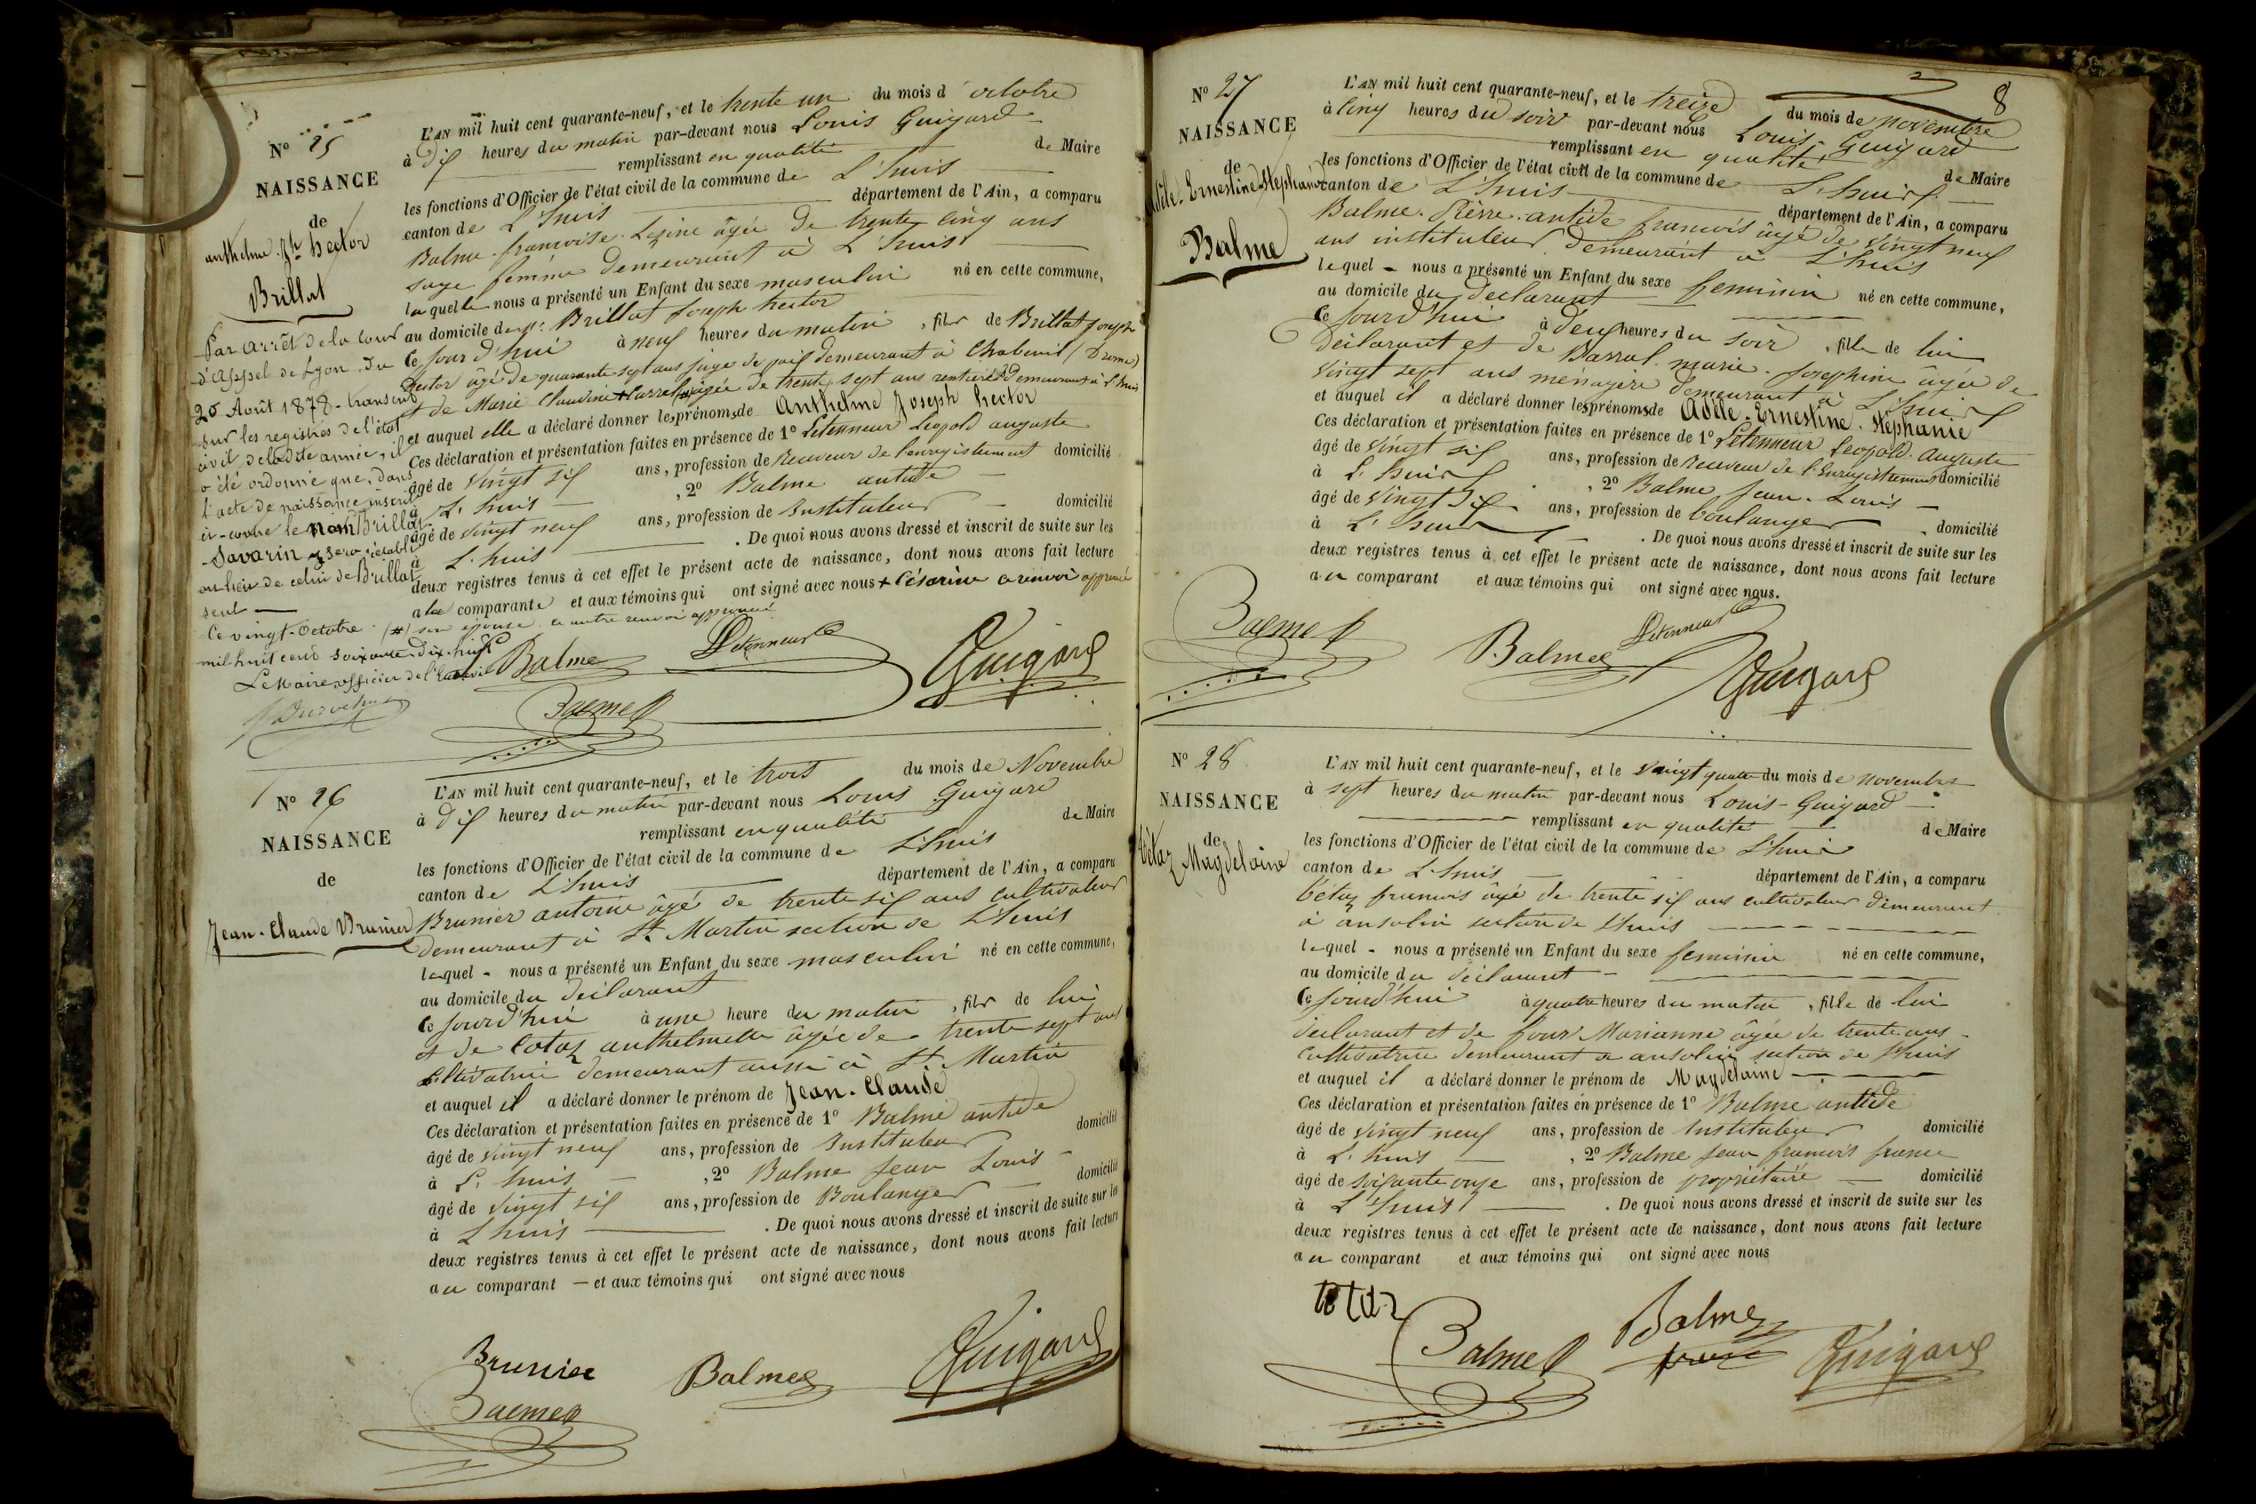 N° 25
NAISSANCE
de
anthelme Jh hector
Brillat
Par arrêt de la Cour
d'Appel de Lyon du
20 Août 1878 - transcrit
sur les registres de l'état
civil de ladite année, il
a été ordonné que, dans
l'acte de naissance inscrit
ci-contre le nom Brillat
-Savarin sera rétabli
au lieu de celui de Brillat
seul —
Ce vingt-Octobre
mil huit cent soixante-dix-huit
Le Maire officier de l'état civil
L'AN mil huit cent quarante-neuf, et le trente un du mois d'octobre
à dix heures du matin par-devant nous Louis Guigard
remplissant en qualité de Maire
les fonctions d'Officier de l'état civil de la commune de L'huis
canton de L'huis département de l'Ain, a comparu
Balme françoise Lézine âgée de trente cinq ans
sage femme demeurant à L'huis
laquelle nous a présenté un Enfant du sexe masculin né en cette commune,
au domicile de Mr Brillat Joseph hector
Ce jour d'hui à neuf heures du matin, fils de Brillat Joseph
hector âgé de quarante sept ans juge de paix demeurant à Chabeuil (Drome)
et de Marie Claudine + Carrel (#) âgée de trente sept ans rentière demeurant à L'huis
et auquel elle a déclaré donner les prénoms de Anthelme Joseph hector
Ces déclaration et présentation faites en présence de 1° Letenneur Leopold auguste
âgé de vingt six ans, profession de Receveur de l'enregistrement domicilié
à L'huis , 2° Balme antide
âgé de vingt neuf ans, profession de Instituteur domicilié
à L'huis . De quoi nous avons dressé et inscrit de suite sur les
deux registres tenus à cet effet le présent acte de naissance, dont nous avons fait lecture
a la comparante et aux témoins qui ont signé avec nous + Césarine a renvoi approuvé
(#) son épouse a autre renvoi approuvé
Balme Letenneur Guigard
Balme
N° 26
NAISSANCE
de
Jean-Claude Brunier
L'AN mil huit cent quarante-neuf, et le trois du mois de Novembre
à dix heures du matin par-devant nous Louis Guigard
remplissant en qualité de Maire
les fonctions d'Officier de l'état civil de la commune de L'huis
canton de L'huis département de l'Ain, a comparu
Brunier antoine âgé de trente six ans cultivateur
demeurant à St. Martin section de L'huis
lequel - nous a présenté un Enfant du sexe masculin né en cette commune,
au domicile du déclarant
Ce jourd'hui à une heure du matin, fils de lui
et de Cotaz anthelmette âgée de trente sept ans
cultivatrice demeurant aussi à St. Martin
et auquel il a déclaré donner le prénom de Jean-Claude
Ces déclaration et présentation faites en présence de 1° Balme antide
âgé de vingt neuf ans, profession de Instituteur domicilié
à L'huis , 2° Balme Jean Louis
âgé de vingt six ans, profession de Boulanger domicilié
à L'huis . De quoi nous avons dressé et inscrit de suite sur les
deux registres tenus à cet effet le présent acte de naissance, dont nous avons fait lecture
au comparant — et aux témoins qui ont signé avec nous
Brunier Balme Guigard
Balme
8
N° 27
NAISSANCE
de
Adèle-Ernestine-Stephanie
Balme
L'AN mil huit cent quarante-neuf, et le treize du mois de novembre
à cinq heures du soir par-devant nous Louis Guigard
remplissant en qualité de Maire
les fonctions d'Officier de l'état civil de la commune de L'huis
canton de L'huis département de l'Ain, a comparu
Balme Pierre antide francois âgé de vingt neuf
ans instituteur demeurant à L'huis
lequel - nous a présenté un Enfant du sexe feminin né en cette commune,
au domicile du déclarant
Ce jourd'hui à deux heures du soir, fille de lui
déclarant et de Barral marie Josephine âgée de
vingt sept ans ménagère demeurant à L'huis
et auquel il a déclaré donner les prénoms de Adèle-Ernestine-Stéphanie
Ces déclaration et présentation faites en présence de 1° Letenneur Leopold auguste
âgé de vingt six ans, profession de Receveur de l'Enregistrement domicilié
à L'huis , 2° Balme Jean-Louis
âgé de vingt six ans, profession de boulanger domicilié
à L'huis . De quoi nous avons dressé et inscrit de suite sur les
deux registres tenus à cet effet le présent acte de naissance, dont nous avons fait lecture
au comparant et aux témoins qui ont signé avec nous.
Balme Balme Letenneur
Guigard
N° 28
NAISSANCE
de
Bétaz Magdelaine
L'AN mil huit cent quarante-neuf, et le vingt quatre du mois de novembre
à sept heures du matin par-devant nous Louis-Guigard
remplissant en qualité de Maire
les fonctions d'Officier de l'état civil de la commune de L'huis
canton de L'huis département de l'Ain, a comparu
bétaz francois âgé de trente six ans cultivateur demeurant
à ansolin section de L'huis
lequel - nous a présenté un Enfant du sexe feminin né en cette commune,
au domicile du déclarant
Ce jourd'hui à quatre heures du matin, fille de lui
déclarant et de four Marianne âgée de trente ans
cultivatrice demeurant à ansolin section de L'huis
et auquel il a déclaré donner le prénom de Magdelaine
Ces déclaration et présentation faites en présence de 1° Balme antide
âgé de vingt neuf ans, profession de Instituteur domicilié
à L'huis , 2° Balme Jean francois
âgé de soixante onze ans, profession de propriétaire domicilié
à L'huis . De quoi nous avons dressé et inscrit de suite sur les
deux registres tenus à cet effet le présent acte de naissance, dont nous avons fait lecture
au comparant et aux témoins qui ont signé avec nous
Balme Balme Guigard